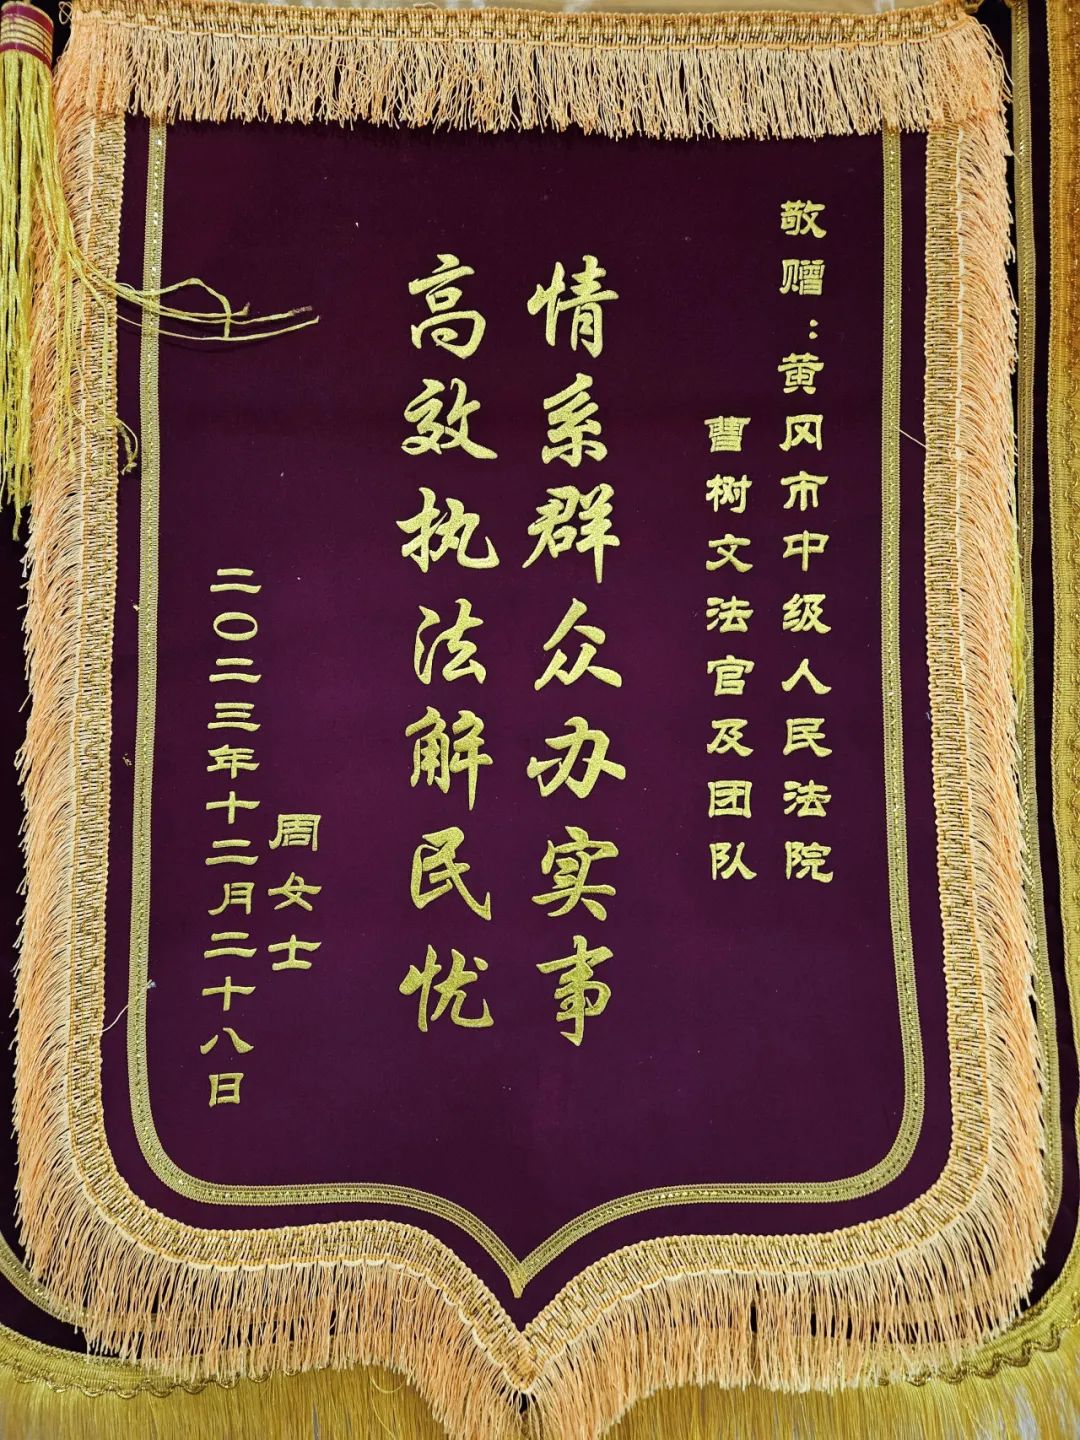 敬赠：黄冈市中级人民法院
曹树文法官及团队
情系群众办实事
高效执法解民忧
周女士
二〇二三年十二月二十八日